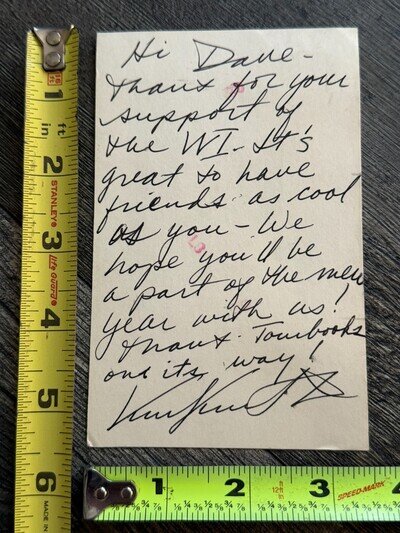 Hi Dave -
thanx for your
support of
the WI - It's
great to have
friends as cool
as you - We
hope you'll be
a part of the new
year with us!
thanx - Tourbooks
one its way!
1
ft
in
2
STANLEY
3
Life Guard
4
5
6
MADE IN
1
2
12in
ft
3
SPEED-MARK
4